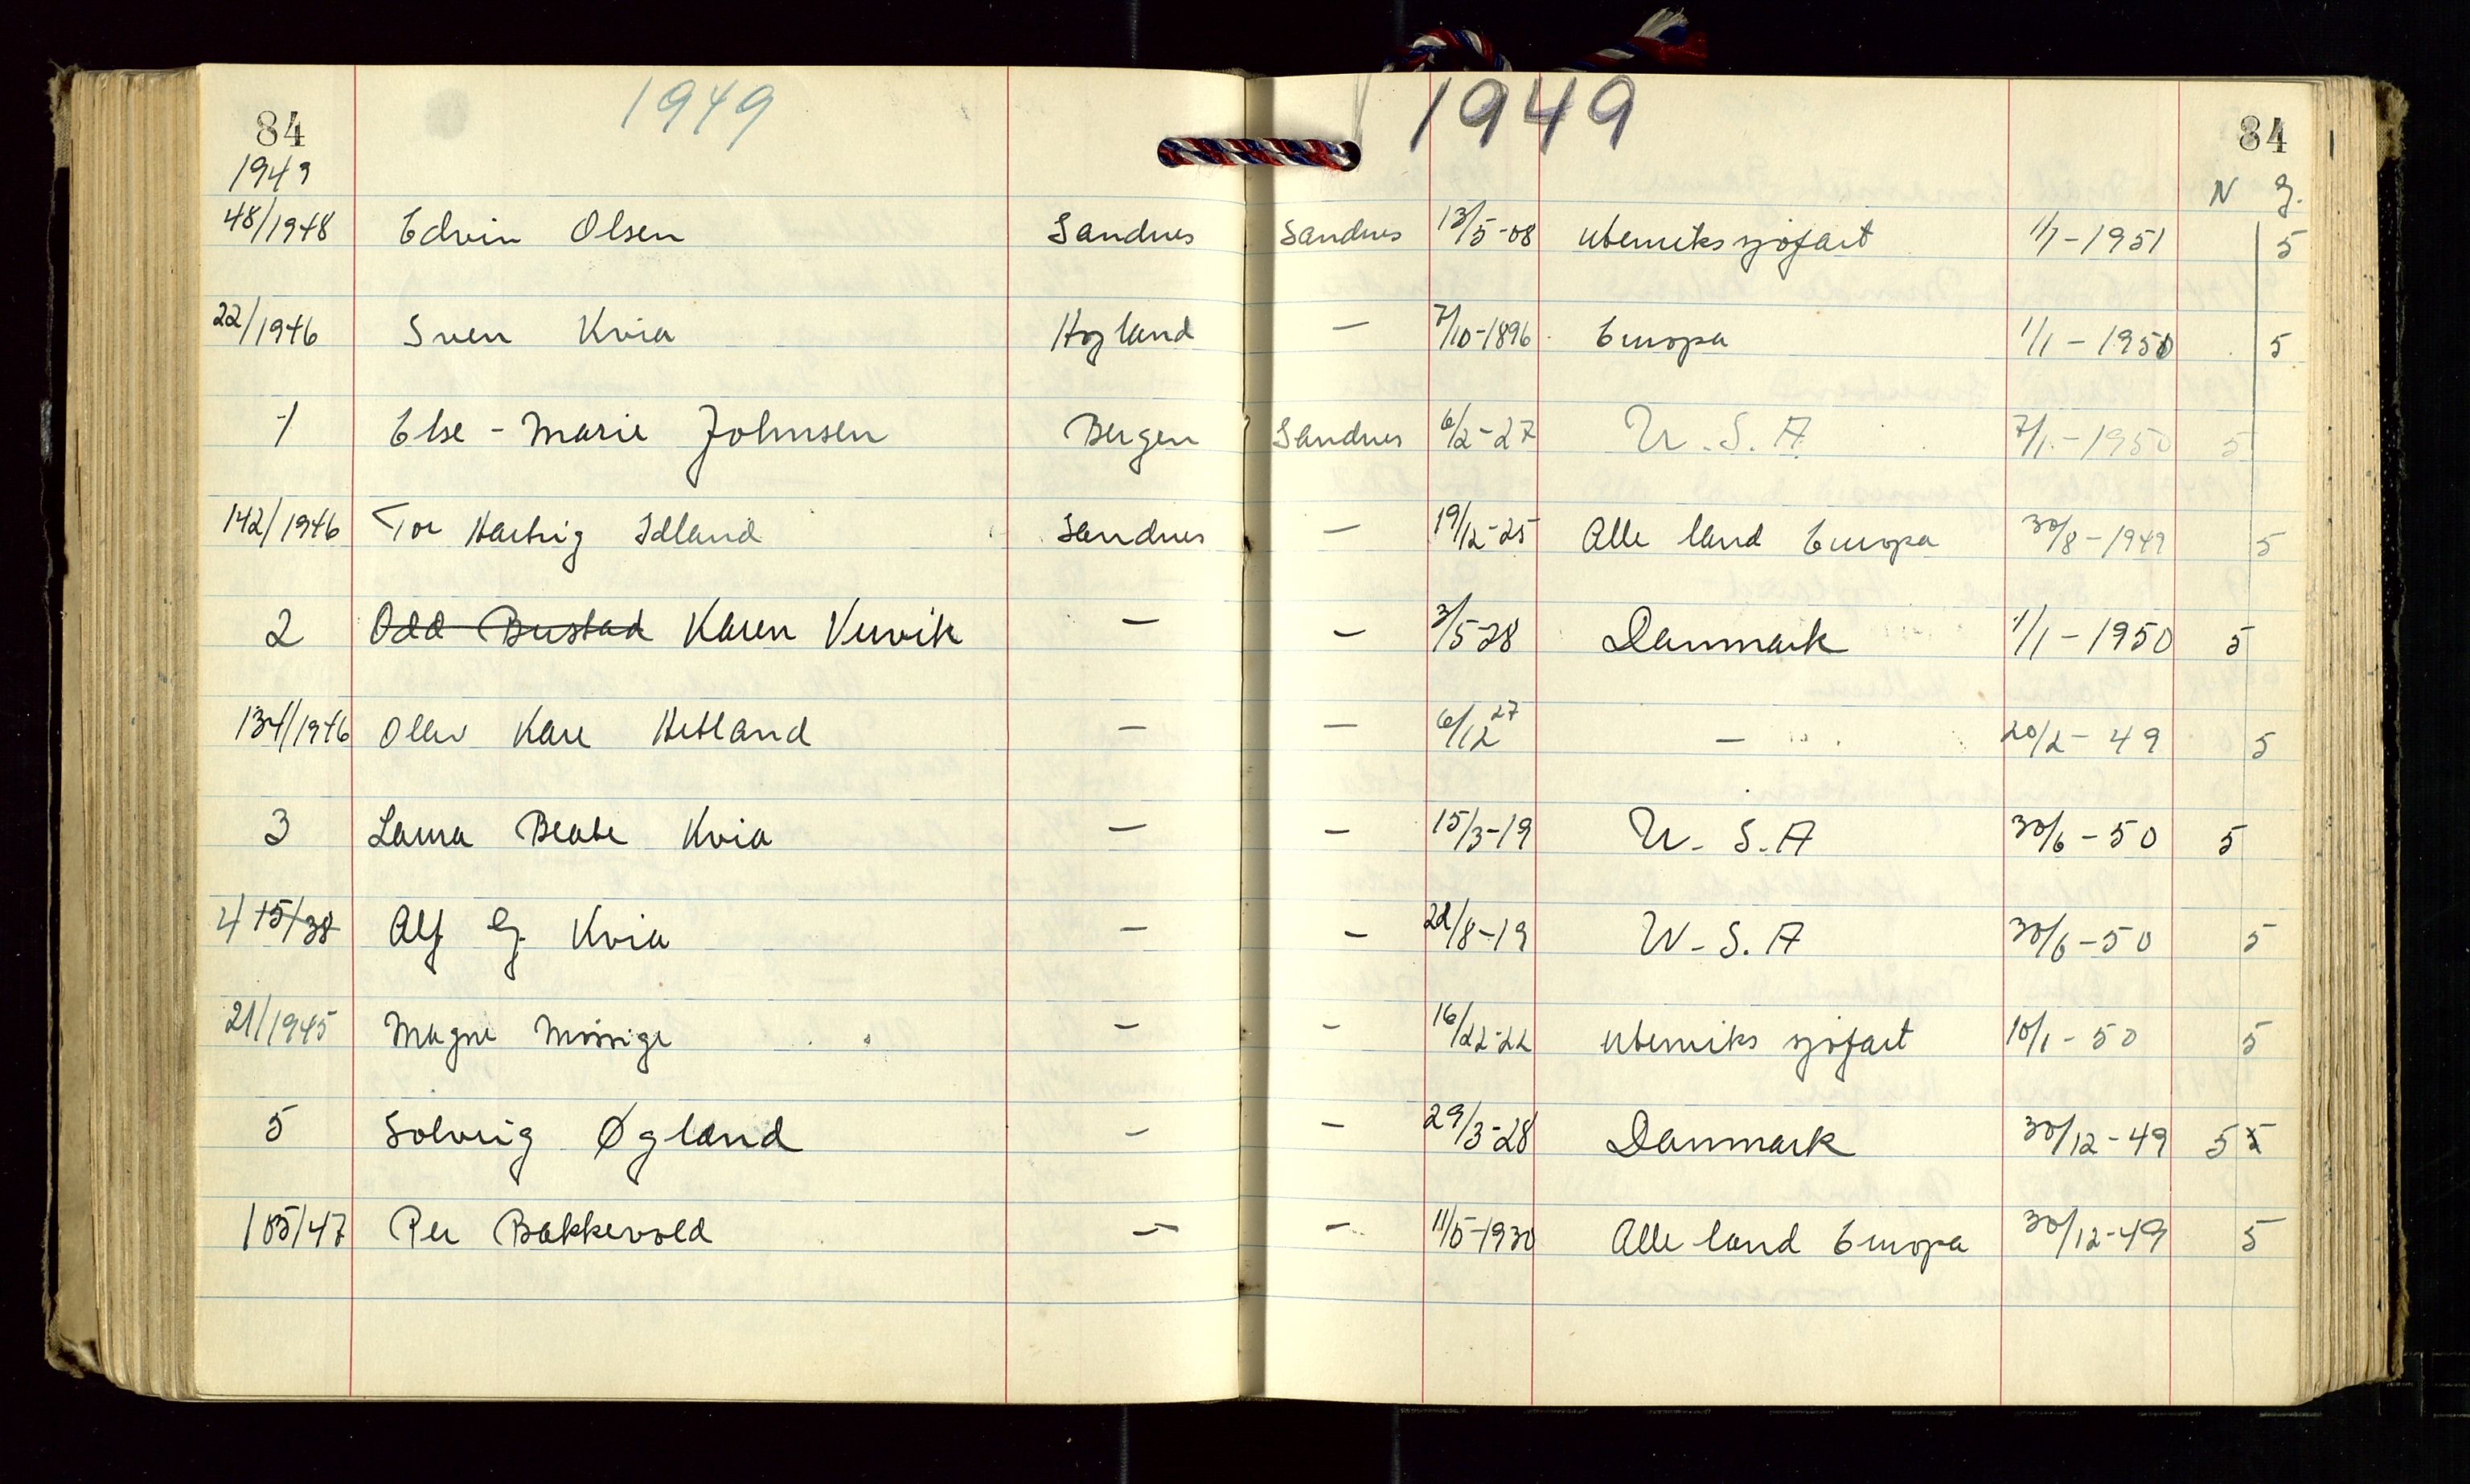 84 1949 1949 84
1949 N g.
48/1948 Edvin Olsen Sandnes Sandnes 13/5-08 utenriks sjøfart 1/1-1951 5
22/1946 Sven Kvia Høyland — 7/10-1896 Europa 1/1-1950 5
1 Else-Marie Johnsen Bergen Sandnes 6/2-27 U.S.A 7/1-1950 5
142/1946 Tor Hartvig Idland Sandnes — 19/12-25 Alle land Europa 30/8-1949 5
2 Odd Bustad Karen Vervik — — 3/5-28 Danmark 1/1-1950 5
134/1946 Olav Kåre Hetland — — 6/12 27 — 20/2-49 5
3 Laura Beate Kvia — — 15/3-19 U.S.A 30/6-50 5
4 15/38 Alf G. Kvia — — 22/8-19 U.S.A 30/6-50 5
21/1945 Magne Mossige — — 16/22-22 utenriks sjøfart 10/1-50 5
5 Solveig Øgland — — 29/3-28 Danmark 30/12-49 5 5
105/47 Per Bakkevold — — 11/5-1930 Alle land Europa 30/12-49 5